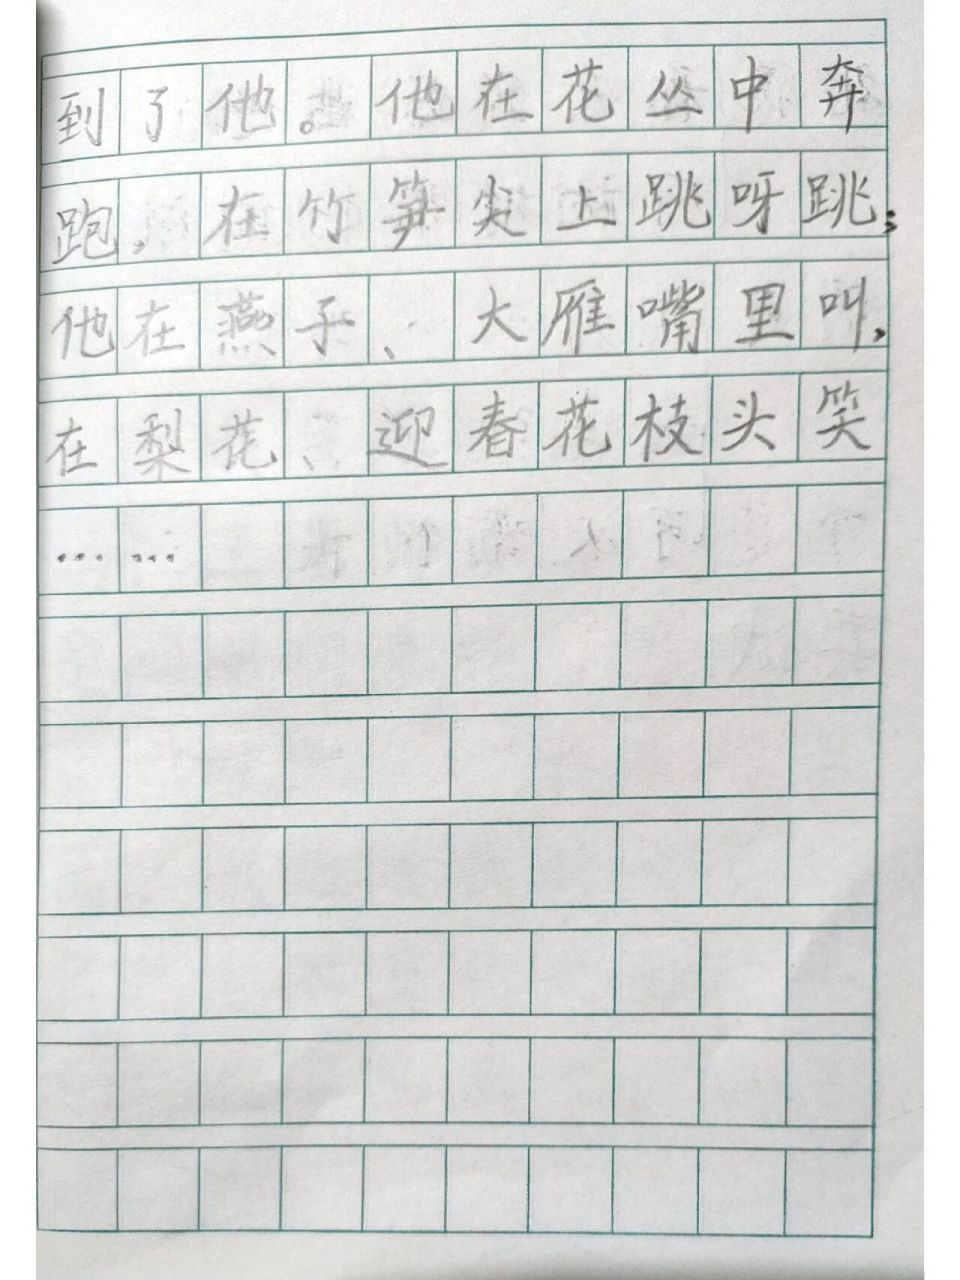 到了他。他在花丛中奔
跑,在竹笋尖上跳呀跳;
他在燕子、大雁嘴里叫,
在梨花、迎春花枝头笑
……